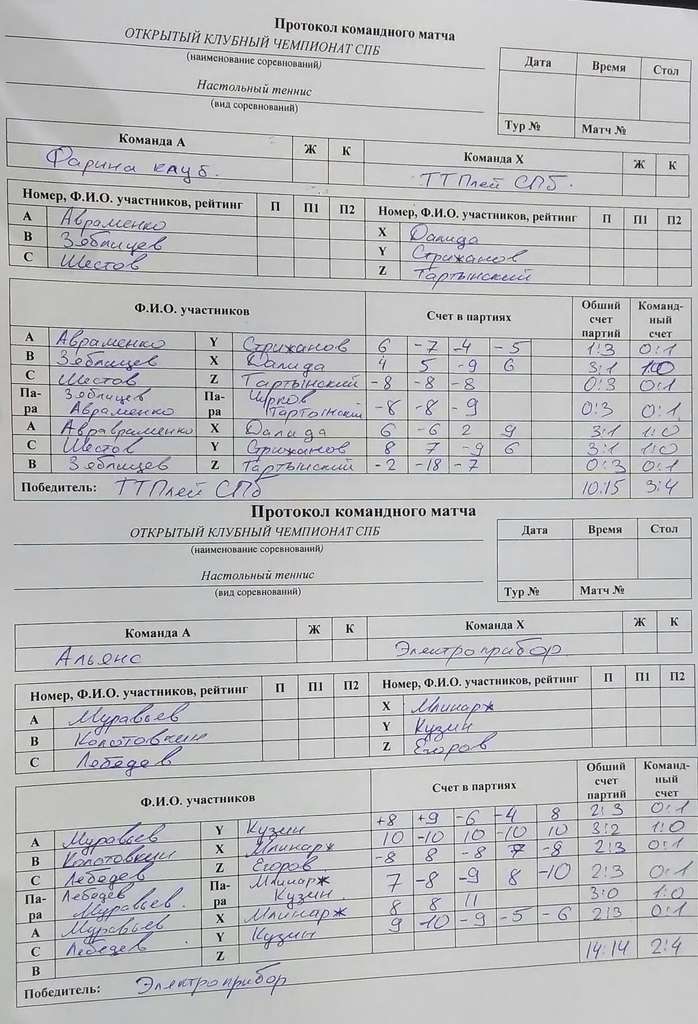 Протокол командного матча
ОТКРЫТЫЙ КЛУБНЫЙ ЧЕМПИОНАТ СПБ
(наименование соревнований)
Настольный теннис
(вид соревнований)
Дата Время Стол
Тур № Матч №
Команда А Ж К Команда Х Ж К
Фарина клуб. ТТПлей СПб.
Номер, Ф.И.О. участников, рейтинг П П1 П2 Номер, Ф.И.О. участников, рейтинг П П1 П2
А Авраменко Х Далида
В Зяблицев Y Стрижанов
С Шестов Z Тартынский
Ф.И.О. участников Счет в партиях Общий счет партий Командный счет
А Авраменко Y Стрижанов 6 -7 -4 -5 1:3 0:1
В Зяблицев Х Далида 4 5 -9 6 3:1 1:0
С Шестов Z Тартынский -8 -8 -8 0:3 0:1
Пара Зяблицев Авраменко Пара Чирков Тартынский -8 -8 -9 0:3 0:1
А Авравраменко Х Далида 6 -6 2 9 3:1 1:0
С Шестов Y Стрижанов 8 7 -9 6 3:1 1:0
В Зяблицев Z Тартынский -2 -18 -7 0:3 0:1
Победитель: ТТПлей СПб 10:15 3:4
Протокол командного матча
ОТКРЫТЫЙ КЛУБНЫЙ ЧЕМПИОНАТ СПБ
(наименование соревнований)
Настольный теннис
(вид соревнований)
Дата Время Стол
Тур № Матч №
Команда А Ж К Команда Х Ж К
Альянс Электроприбор
Номер, Ф.И.О. участников, рейтинг П П1 П2 Номер, Ф.И.О. участников, рейтинг П П1 П2
А Муравьев Х Млинарж
В Колотовкин Y Кузин
С Лебедев Z Егоров
Ф.И.О. участников Счет в партиях Общий счет партий Командный счет
А Муравьев Y Кузин +8 +9 -6 -4 8 2:3 0:1
В Колотовкин Х Млинарж 10 -10 10 -10 10 3:2 1:0
С Лебедев Z Егоров -8 8 -8 7 -8 2:3 0:1
Пара Лебедев Муравьев. Пара Млинарж Кузин 7 -8 -9 8 -10 2:3 0:1
А Муравьев Х Млинарж 8 8 11 3:0 1:0
С Лебедев Y Кузин 9 -10 -9 -5 -6 2:3 0:1
В Z 14:14 2:4
Победитель: Электроприбор